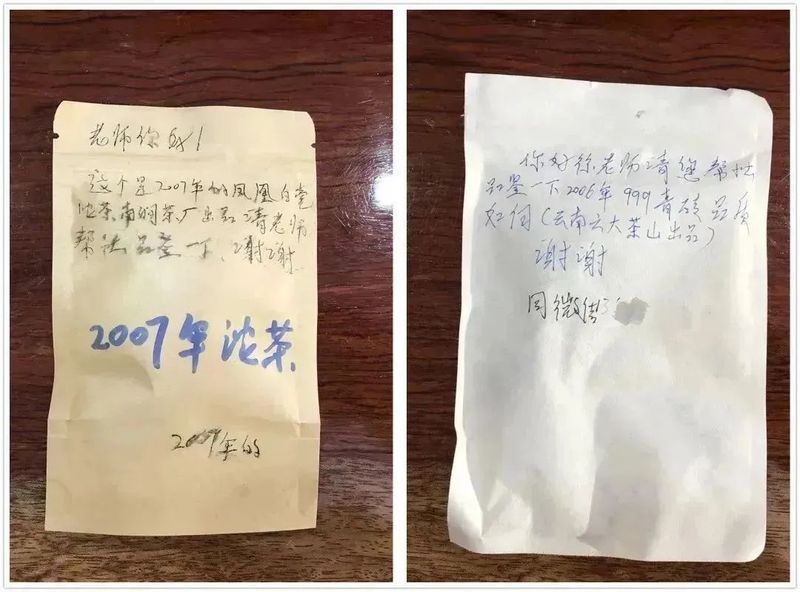 老师你好!
这个是2007年的凤凰白毫
沱茶,南涧茶厂出品,请老师
帮忙品鉴一下、谢谢
2007年沱茶
2007年的
你好徐老师请您帮忙
品鉴一下2006年999青砖品质
如何(云南六大茶山出品)
谢谢